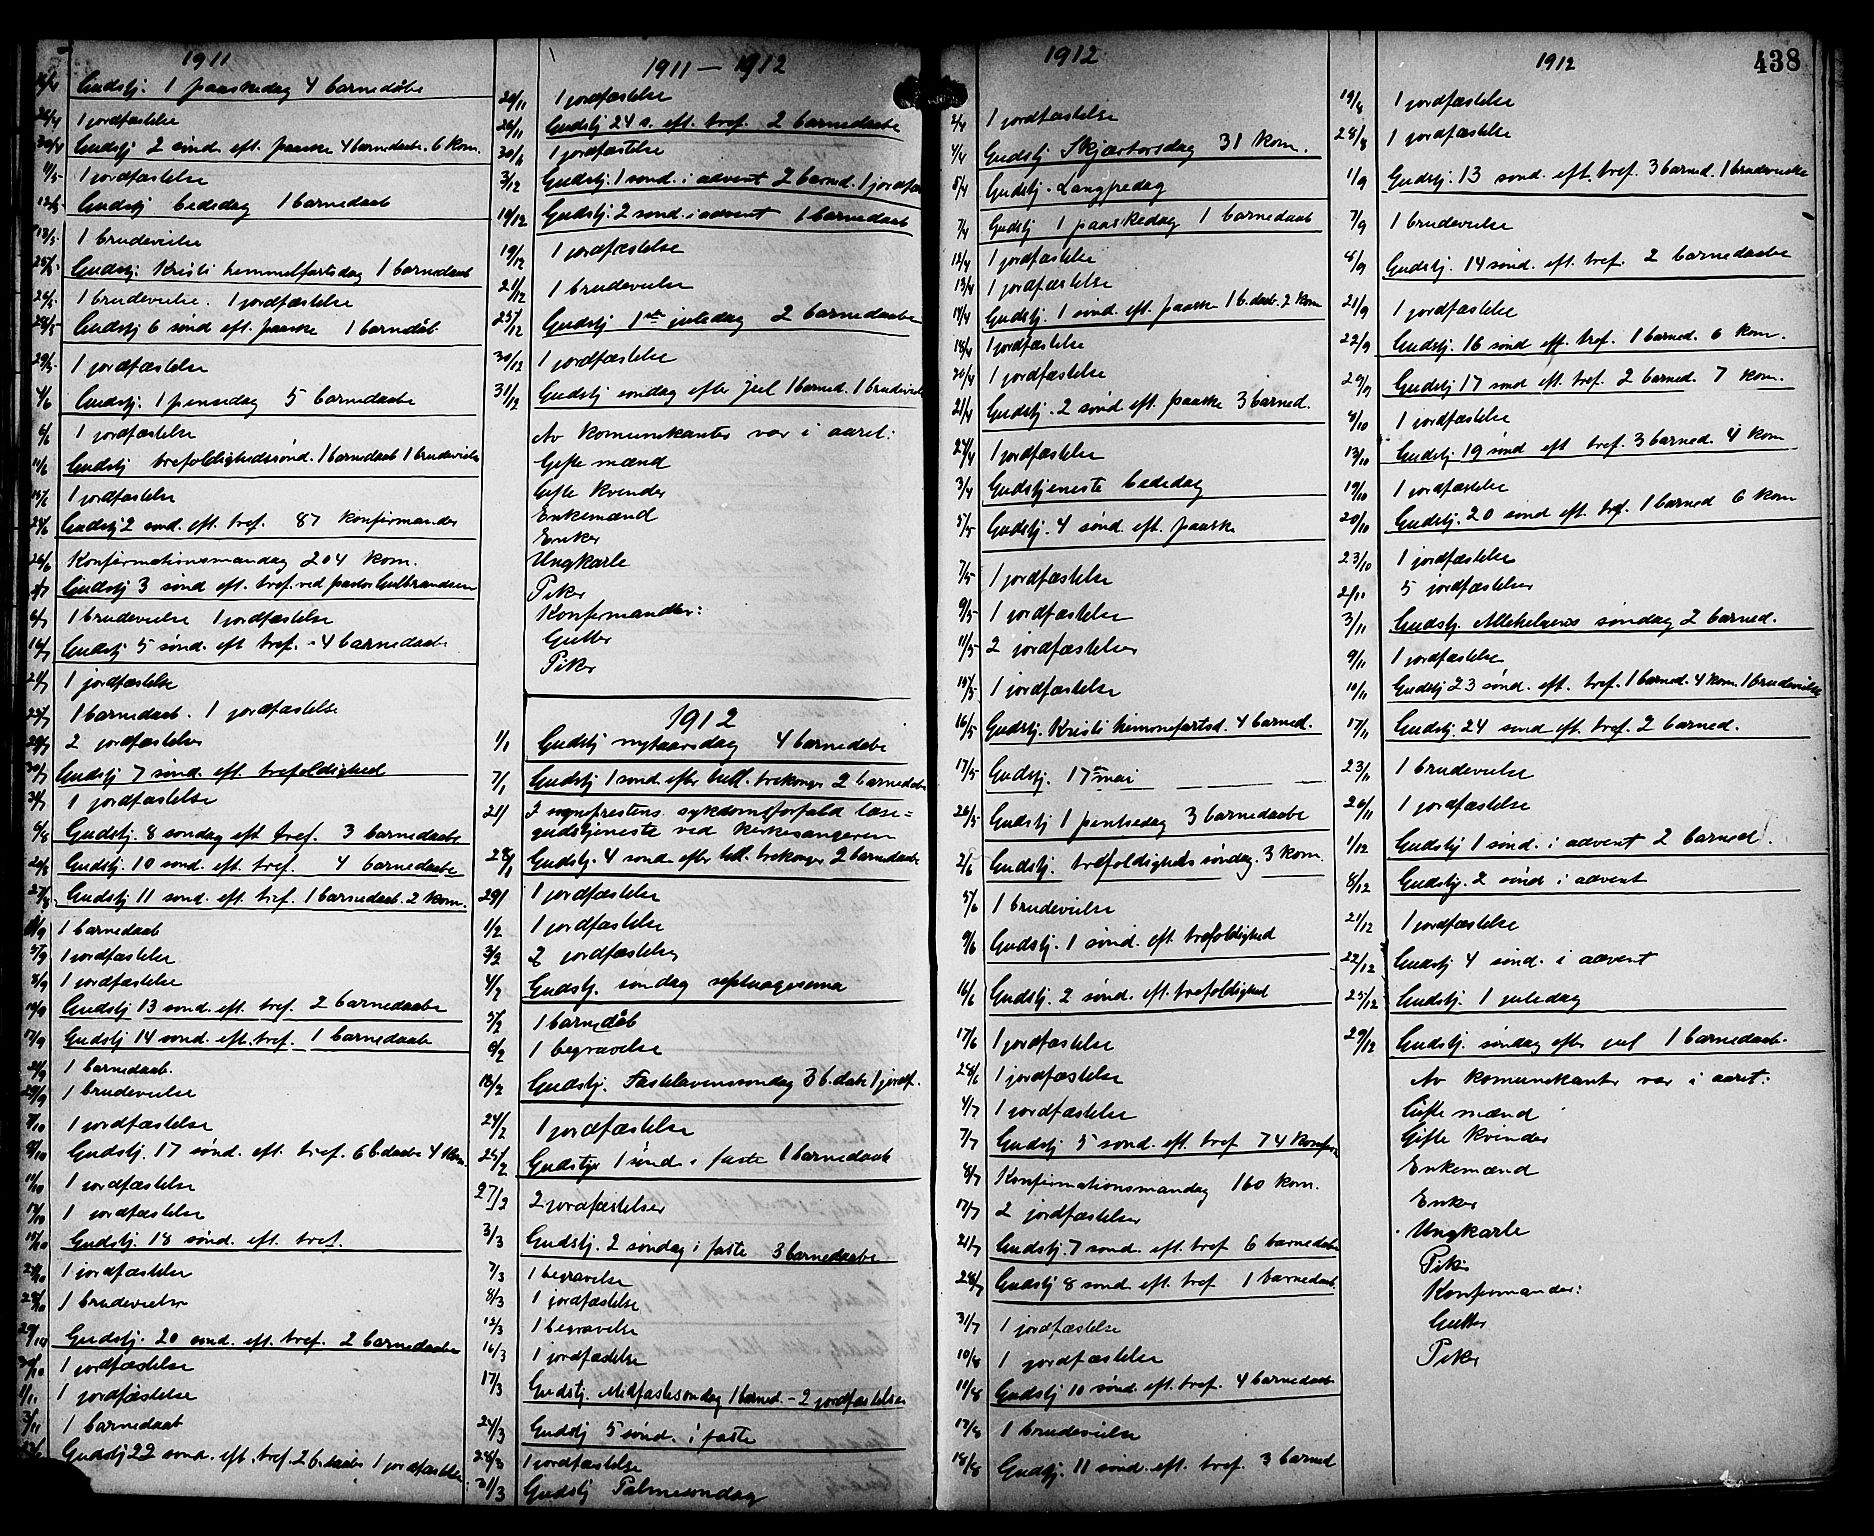 1911
16/4 Gudstj. 1 paaskedag 4 barnedåbe
1 jordfæstelse
30/4 Gudstj 2 sönd. eft. paaske 4 barnedaabe. 6 kom.
1 jordfæstelse
12/5 Gudstj bededag 1 barnedaab
1 brudevielse
25/5 Gudstj. Kristi himmelfartsdag 1 barnedaab
26/5 1 brudevielse. 1 jordfæstelse
28/5 Gudstj 6 sönd eft. paaske 1 barndåb
29/5 1 jordfæstelse
4/6 Gudstj. 1 pinsedag 5 barnedaabe
1 jordfæstelse
11/6 Gudstj trefoldighedssönd. 1 barnedaab 1 brudevielse
1 jordfæstelse
Gudstj 2 sönd. eft. tref. 87 konfirmander
26/6 Konfirmationsmandag 204 kom.
Gudstj 3 sönd eft. tref. ved pastor Gulbrandsen
1 brudevielse 1 jordfæstelse
16/7 Gudstj 5 sönd. eft tref. - 4 barnedaabe
1 jordfæstelse
1 barnedaab. 1 jordfæstelse
2 jordfæstelser
30/7 Gudstj 7 sönd. eft. trefoldighed
1 jordfæstelse
6/8 Gudstj. 8 söndag eft tref. 3 barnedaabe
20/8 Gudstj. 10 sönd. eft. tref. 4 barnedaabe
27/8 Gudstj 11 sönd. eft. tref. 1 barnedaab. 2 kom.
1 barnedaab
1 jordfæstelse
8/9 1 jordfæstelse
10/9 Gudstj 13 sönd. eft. tref. 2 barnedaabe
17/9 Gudstj 14 sönd. eft. tref. 1 barnedaab
1 barnedaab.
1 brudevielse
1 jordfæstelse
8/10 Gudstj. 17 sönd. eft. tref. 6 b.daabe 4 kom.
1 jordfæstelse
1 jordfæstelse
15/10 Gudstj. 18 sönd. eft. tref.
1 jordfæstelse
1 brudevielse
29/10 Gudstj. 20 sönd. eft. tref. 2 barnedaabe
1 jordfæstelse
1/11 1 jordfæstelse
3/11 1 barnedaab
Gudstj 22 sönd. eft. tref. 2 b.daabe 1 jordfæstelse
1911 — 1912
1 jordfæstelse
26/11 Gudstj 24 s. eft. tref. 2 barnedaabe
1 jordfæstelse
3/12 Gudstj. 1 sönd. i advent 2 barned. 1 jordfæ
10/12 Gudstj. 2 sönd. i advent 1 barnedaab
19/12 1 jordfæstelse
21/12 1 brudevielse
25/12 Gudstj 1ste juledag 2 barnedaabe
30/12 1 jordfæstelse
31/12 Gudstj söndag efter jul 1 barned. 1 brudevielse
Av komunikanter var i aaret:
Gifte mænd
Gifte kvinder
Enkemænd
Enker
Ungkarle
Piker
Konfirmander:
Gutter
Piker
1912
1/1 Gudstj nytaarsdag 4 barnedåbe
7/1 Gudstj 1 sönd efter hell. trekonger 2 barnedaabe
21/1 I sogneprestens sykdomsforfald læse=
gudstjeneste ved kirkesangeren
28/1 Gudstj. 4 sönd. efter hell. trekonger 2 barnedaabe
29/1 1 jordfæstelse
1/2 1 jordfæstelse
3/2 2 jordfæstelser
4/2 Gudstj. söndag septuagesima
5/2 1 barnedåb
6/2 1 begravelse
18/2 Gudstj. Fastelavenssöndag 3 b.dåb 1 jordf.
24/2 1 jordfæstelse
25/2 Gudstj. 1 sönd. i faste 1 barnedaab
27/2 2 jordfæstelser
3/3 Gudstj. 2 söndag i faste 3 barnedaabe
7/3 1 begravelse
8/3 1 jordfæstelse
12/3 1 begravelse
16/3 1 jordfæstelse
17/3 Gudstj. Midfastesöndag 1 barned. - 2 jordfæstelser
24/3 Gudstj 5 sönd. i faste
28/3 1 jordfæstelse
31/3 Gudstj Palmesöndag
1912
2/4 1 jordfæstelse
4/4 Gudstj Skjærtorsdag 31 kom.
5/4 Gudstj. Langfredag
7/4 Gudstj 1 paaskedag 1 barnedaab
12/4 1 jordfæstelse
13/4 1 jordfæstelse
14/4 Gudstj. 1 sönd. eft paaske 1 b.daab. 2 kom
18/4 1 jordfæstelse
20/4 1 jordfæstelse
21/4 Gudstj. 2 sönd eft. paaske 3 barned.
27/4 1 jordfæstelse
3/4 Gudstjeneste bededag
5/5 Gudstj. 4 sönd. eft. paaske
7/5 1 jordfæstelse
9/5 1 jordfæstelse
11/5 2 jordfæstelser
15/5 1 jordfæstelse
16/5 Gudstj. Kristi himmelfartsd. 4 barned.
17/5 Gudstj. 17de mai
26/5 Gudstj 1 pintsedag 3 barnedaabe
2/6 Gudstj. trefoldigheds söndag. 3 kom.
5/6 1 brudevielse
9/6 Gudstj. 1 sönd. eft. trefoldighed
16/6 Gudstj. 2 sönd. eft. trefoldighed
17/6 1 jordfæstelse
28/6 1 jordfæstelse
4/7 1 jordfæstelse
7/7 Gudstj 5 sönd. eft. tref 74 konfirm
8/7 Konfirmationsmandag 160 kom.
17/7 2 jordfæstelser
21/7 Gudstj. 7 sönd. eft. tref 6 barnedaabe
28/7 Gudstj 8 sönd. eft. tref 1 barnedaab
31/7 1 jordfæstelse
10/8 1 jordfæstelse
11/8 Gudstj 10 sönd. eft. tref. 4 barnedaab
17/8 1 brudevielse
18/8 Gudstj. 11 sönd. eft. tref. 3 barned
1912
438
19/8 1 jordfæstelse
28/8 1 jordfæstelse
1/9 Gudstj. 13 sönd. eft. tref. 3 barned. 1 brudevielse
7/9 1 brudevielse
8/9 Gudstj. 14 sönd. eft. tref. 2 barnedaabe
21/9 1 jordfæstelse
22/9 Gudstj. 16 sönd eft. tref. 1 barned. 6 kom.
29/9 Gudstj 17 sönd eft. tref. 2 barned. 7 kom.
8/10 1 jordfæstelse
13/10 Gudstj. 19 sönd eft. tref. 3 barned. 4 kom
19/10 1 jordfæstelse
20/10 Gudstj. 20 sönd eft. tref. 1 barned 6 kom
23/10 1 jordfæstelse
2/11 5 jordfæstelser
3/11 Gudstj. Allehelgens söndag 2 barned.
9/11 1 jordfæstelse
10/11 Gudstj 23 sönd. eft. tref. 1 barned. 4 kom. 1 brudevielse
17/11 Gudstj. 24 sönd eft. tref. 2 barned.
23/11 1 brudevielse
26/11 1 jordfæstelse
1/12 Gudstj 1 sönd. i advent 2 barned.
8/12 Gudstj. 2 sönd i advent
21/12 1 jordfæstelse
22/12 Gudstj 4 sönd. i advent
25/12 Gudstj. 1 juledag
29/12 Gudstj. söndag efter jul 1 barnedaab.
Av komunikanter var i aaret:
Gifte mænd
Gifte kvinder
Enkemænd
Enker
Ungkarle
Piker
Konfirmander:
Gutter
Piker